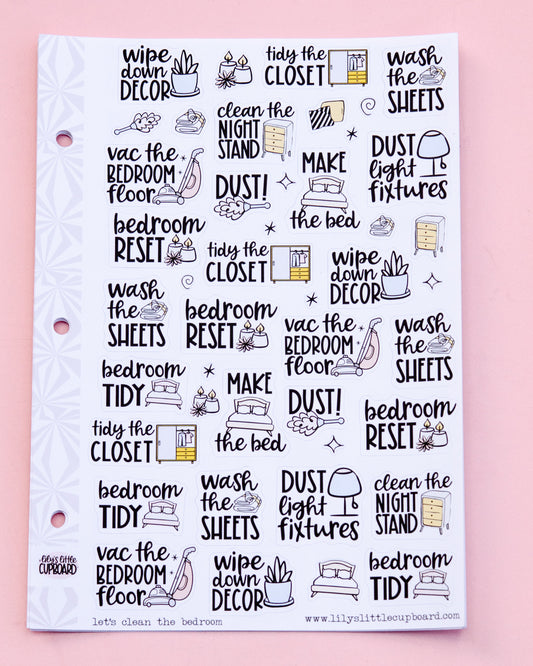 wipe
down
DECOR
tidy the
CLOSET
wash
the
SHEETS
clean the
NIGHT
STAND
DUST
light
fixtures
vac the
BEDROOM
floor
DUST!
MAKE
the bed
bedroom
RESET
tidy the
CLOSET
wipe
down
DECOR
wash
the
SHEETS
bedroom
RESET
vac the
BEDROOM
floor
wash
the
SHEETS
bedroom
TIDY
MAKE
the bed
DUST!
bedroom
RESET
tidy the
CLOSET
bedroom
TIDY
wash
the
SHEETS
DUST
light
fixtures
clean the
NIGHT
STAND
vac the
BEDROOM
floor
wipe
down
DECOR
bedroom
TIDY
lily's little
CUPBOARD
let's clean the bedroom
www.lilyslittlecupboard.com